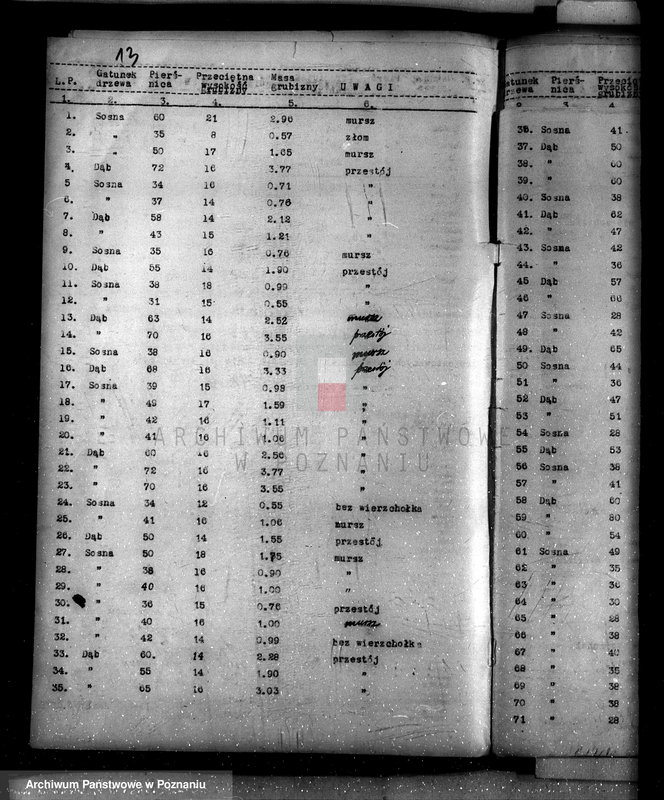 13
L.P. Gatunek drzewa Pierś-nica Przeciętna wysokość Masa grubizny U W A G I
1. 2. 3. 4. 5. 6.
1. Sosna 60 21 2.96 mursz
2. " 35 8 0.57 złom
3. " 50 17 1.65 mursz
4. Dąb 72 16 3.77 przestój
5 Sosna 34 16 0.71 "
6. " 37 14 0.76 "
7. Dąb 58 14 2.12 "
8. " 43 15 1.21 "
9. Sosna 35 16 0.76 mursz
10. Dąb 55 14 1.90 przestój
11. Sosna 38 18 0.99 "
12. " 31 15 0.55 "
13. Dąb 63 14 2.52 mursz
14. " 70 16 3.55 przestój
15. Sosna 38 16 0.90 mursz
16. Dąb 68 16 3.33 przestój
17. Sosna 39 15 0.98 "
18. " 49 17 1.59 "
19. " 42 16 1.11 "
20. " 41 16 1.06 "
21. Dąb 60 16 2.56 "
22. " 72 16 3.77 "
23. " 70 16 3.55 "
24. Sosna 34 12 0.55 bez wierzchołka
25. " 41 16 1.06 mursz
26. Dąb 50 14 1.55 przestój
27. Sosna 50 18 1.75 mursz
28. " 38 16 0.90 "
29. " 40 16 1.00 "
30. " 36 15 0.76 przestój
31. " 40 16 1.00 mursz
32. " 42 14 0.99 bez wierzchołka
33. Dąb 60. 14 2.28 przestój
34. " 55 14 1.90 "
35. " 65 16 3.03 "
atunek drzewa Pierś-nica Przecię wysoko grubizn
2. 3. 4.
36. Sosna 41
37. Dąb 50
38. " 60
39. " 60
40. Sosna 38
41. Dąb 62
42. " 47
43. Sosna 42
44. " 36
45 Dąb 57
46 " 66
47 Sosna 28
48 " 42
49. Dąb 65
50 Sosna 44
51 " 36
52 Dąb 47
53 " 51
54 Sosna 28
55 Dąb 53
56 Sosna 38
57 " 41
58 Dąb 60
59 " 80
60 " 54
61 Sosna 49
62 " 35
63 " 36
64 " 30
65 " 28
66 " 38
67 " 40
68 " 35
69 " 38
70 " 38
71 " 28
ARCHIWUM PAŃSTWOWE
W POZNANIU
Archiwum Państwowe w Poznaniu